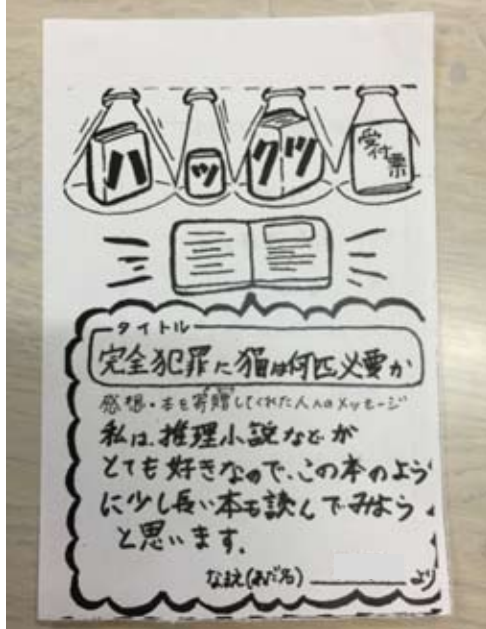 ハックツ
受付票
タイトル
完全犯罪に猫は何匹必要か
感想・本を寄贈してくれた人へのメッセージ
私は、推理小説などが
とても好きなので、この本のよう
に少し長い本も読んでみよう
と思います。
なまえ(あだ名) より